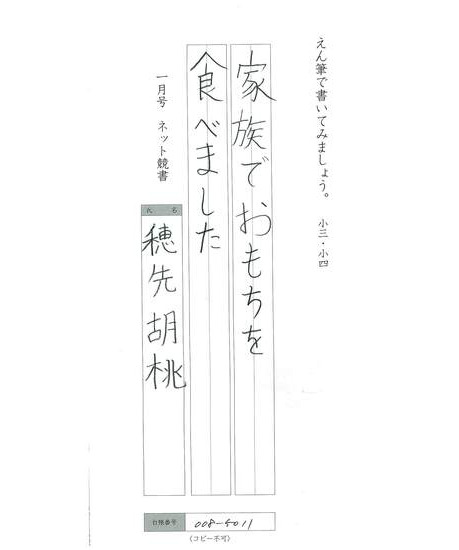 えん筆で書いてみましょう。 小三・小四
家族でおもちを
食べました
一月号 ネット競書
氏 名
穂先胡桃
合格番号 008-5011
(コピー不可)